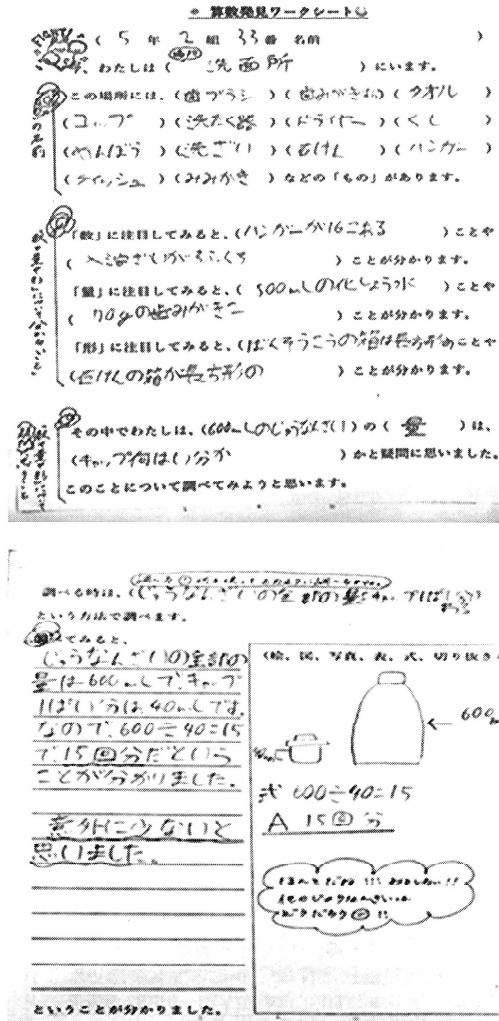 算数発見ワークシート
( 5 年 2 組 33番 名前 )
今、わたしは ( 洗面所 ) にいます。
この場所には、(歯ブラシ) (歯みがきこ) (タオル)
(コップ) (洗たく器) (ドライヤー) (くし)
(めんぼう) (洗ざい) (石けん) (ハンガー)
(ティッシュ) (みみかき) などの「もの」があります。
「数」に注目してみると、(ハンガーが16こある ) ことや
( ) ことが分かります。
「量」に注目してみると、( 500mLの化しょう水 ) ことや
( gの歯みがきこ ) ことが分かります。
「形」に注目してみると、( の箱は長方形の) ことや
(石けんの箱が長方形の ) ことが分かります。
その中でわたしは、(600mLのじゅうなんざい) の ( 量 ) は、
(キャップ何ばい分か ) かと疑問に思いました。
このことについて調べてみようと思います。
調べる時は、(じゅうなんざいの全部の量÷ )
という方法で調べます。
てみると、
じゅうなんざいの全部の
量は600mLで、キャップ
1ぱい分は40mLです。
なので、600÷40=15
で、15回分だという
ことが分かりました。
意外に少ないと
思いました。
ということが分かりました。
(絵、図、写真、表、式、切り抜き
600
式 600÷40=15
A 15回分